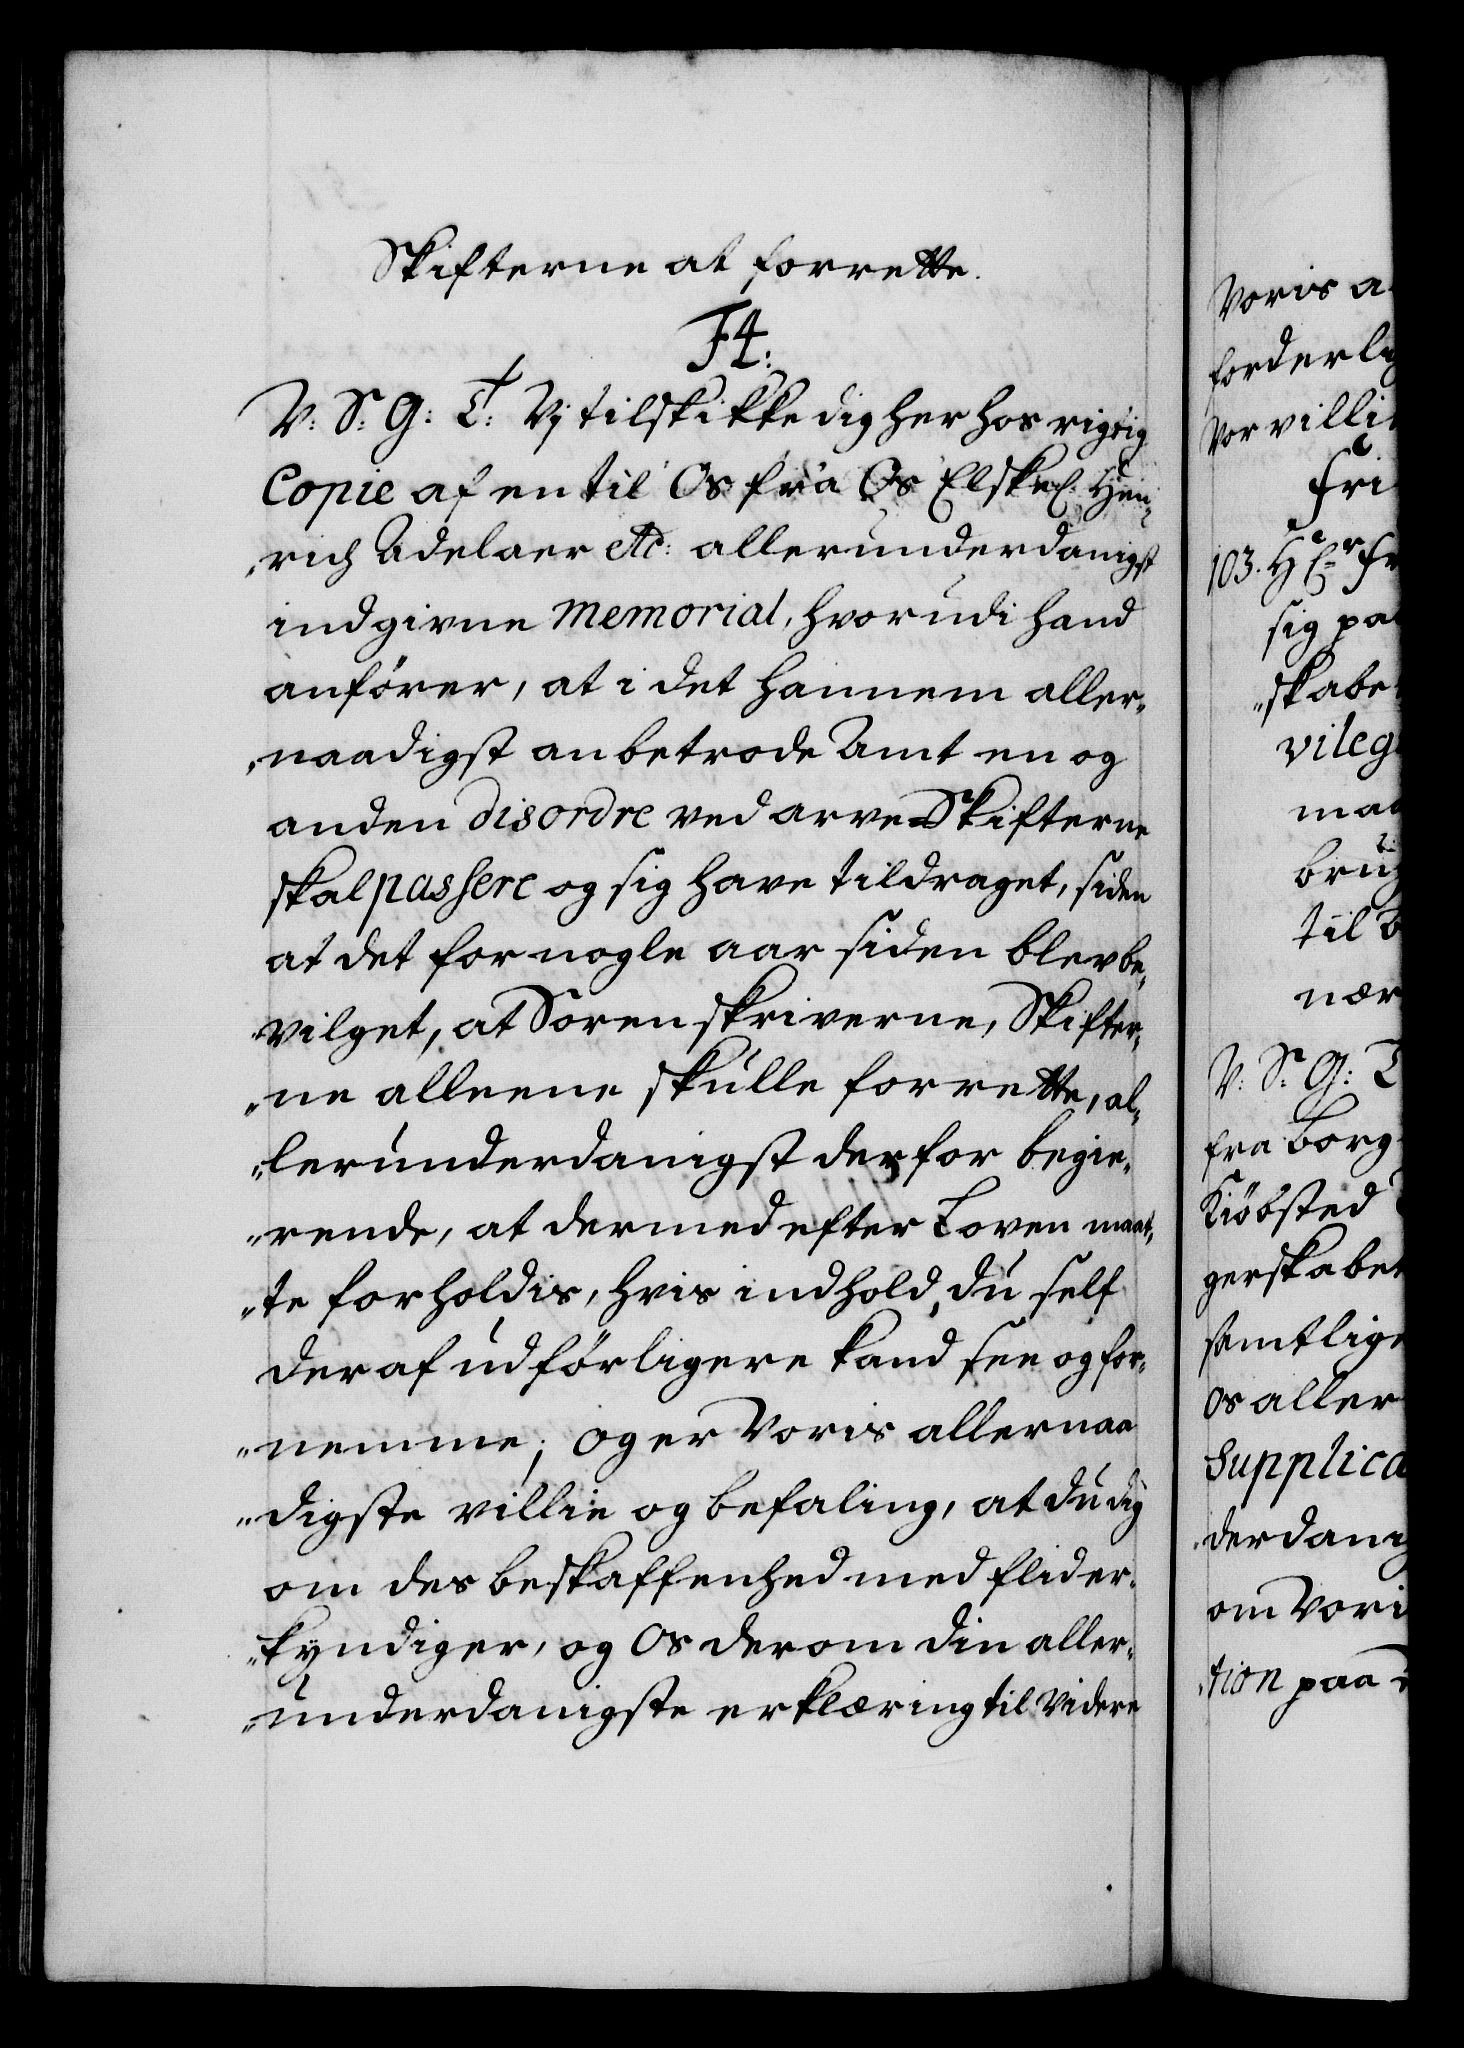 Skifterne at forrette.
F4:
V: S: G: T: Vj tilskikke dig her hos rigtig
Copie af en til Os fra Os Elskel: Hen„
„rich Adelaer etc: allerunderdanigst
indgivne Memorial, hvorudi hand
anfører, at i det hannem aller„
„naadigst anbetrode Amt en og
anden disordre ved arve Skifterne
skal passere og sig have tildraget, siden
at det for nogle aar siden blev be„
„vilget, at Sorenskriverne, Skifter„
„ne alleene skulle forrette, al„
„lerunderdanigst derfor begie„
„rende, at dermed efter Loven maat„
„te forholdis, hvis indhold, du self
deraf udførligere kand see og for„
„nemme; og er Voris allernaa
„digste villie og befaling, at du dig
om des beskaffenhed med flid er„
„kyndiger, og Os derom din aller„
„underdanigste erklæring til videre
Voris a
forderlig
Vor villi
Fri
103. H Er Fr
sig paa
„skabe
vileg
maa
brug
til B
nær
V: S: G: T
fra Borg
Kiøbsted
gerskabet
samtlige
Os aller
Supplica
„derdanig
om Vori
„tion paa